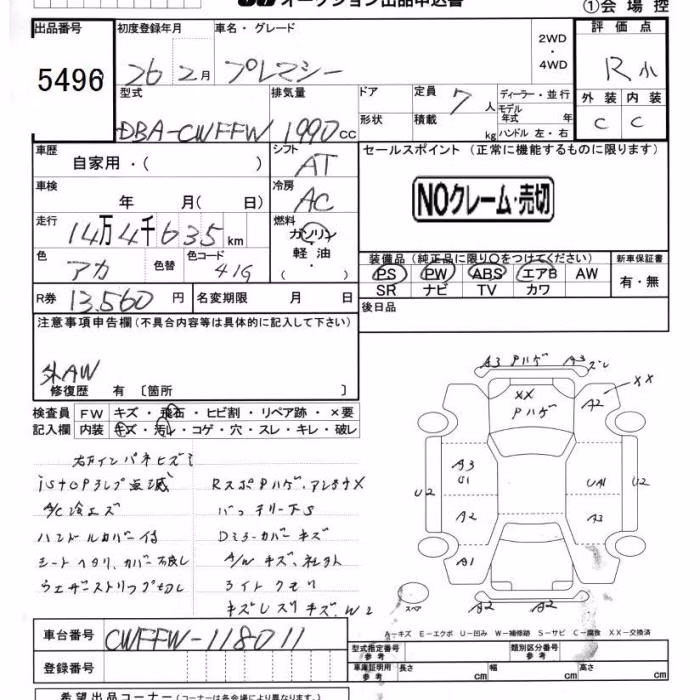 オークション出品申込書
①会場控
出品番号
5496
初度登録年月
26 2月
車名・グレード
プレマシー
2WD
・
4WD
評価点
R小
外装 内装
C C
型式
DBA-CWFFW
排気量
1990 cc
ドア
形状
定員
7 人
積載
kg
ディーラー・並行
モデル年式 年
ハンドル 左・右
車歴
自家用・( )
シフト
AT
セールスポイント (正常に機能するものに限ります)
NOクレーム・売切
車検
年 月( 日)
冷房
AC
走行
14万4千635km
燃料
ガソリン
軽油・
( ・ )
色
アカ
色替
色コード
41G
装備品(純正品に限り○をつけてください)
PS PW ABS エアB AW
SR ナビ TV カワ
新車保証書
有・無
R券 13,560 円
名変期限 月 日
後日品
注意事項申告欄(不具合内容等は具体的に記入して下さい)
外AW
修復歴 有〔箇所 〕
検査員 FW キズ・飛石・ヒビ割・リペア跡・×要
記入欄 内装 キズ・汚れ・コゲ・穴・スレ・キレ・破レ
右フインパネヒズミ
istopランプ点滅
A/C冷エズ
ハンドルカバー付
シートヘタリ、カバー不良し
ウェザーストリップ切レ
RスポPハゲ、アンテナX
バッテリー下S
Dミラーカバーキズ
A/Wキズ、社外
ライトクモリ
キズレズリキズ、W2
A3 Pハゲ A3 ズレ
XX
XX
Pハゲ
A2
A3
U1
UA1
U2
U2
A2
A3
A1
スペア
A2 A2
A―キズ E―エクボ U―凹み W―補修跡 S―サビ C―腐食 XX―交換済
車台番号 CWFFW-118011
型式指定番号
参考
類別区分番号
参考
登録番号
車庫証明用
参考
長さ cm 幅 cm 高さ cm
希望出品コーナー(コーナーは各会場により異なります。)